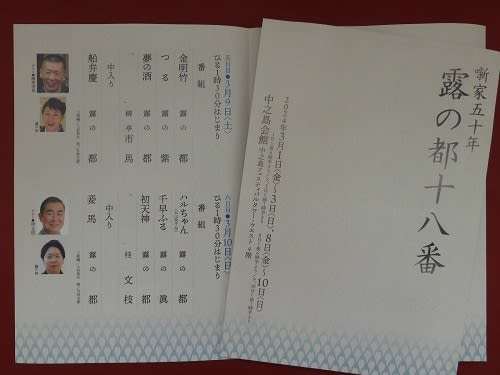 噺家五十年
露の都十八番
2024年3月1日(金)〜3日(日)、8日(金)〜10日(日)
中之島会館 中之島フェスティバルタワー・ウエスト4階
五日目●3月9日(土)
ひる1時30分はじまり
番組
金明竹 露の 都
つる 露の 紫
夢の酒 露の 都
柳亭 市馬
中入り
船弁慶 露の 都
六日目●3月10日(日)
ひる1時30分はじまり
番組
ハルちゃん 露の 都
千早ふる 露の 眞
初天神 露の 都
桂 文枝
中入り
妾馬 露の 都